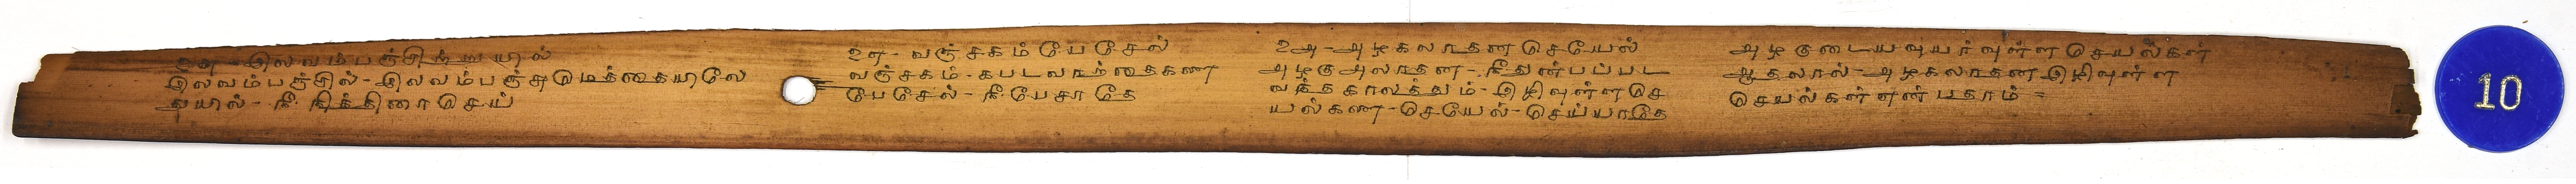 ௨௬ - இலவம்பஞ்சிற்றுயில்
இலவம்பஞ்சில் - இலவம்பஞ்சு மெத்தையிலே
துயில் - நீ நித்திரை செய்
௨௭ - வஞ்சகம் பேசேல்
வஞ்சகம் - கபடவார்த்தைகளை
பேசேல் - நீ பேசாதே
௨௮ - அழகலாதன செயேல்
அழகு அலாதன - நீ துன்பப்பட
வந்தகாலத்தும் - இழிவுள்ள செ
யல்களை - செயேல் - செய்யாதே
அழகுடைய வுயர்வுள்ள செயல்கள்
ஆதலால் - அழகலாதன இழிவுள்ள
செயல்கள் என்பதாம் =
10